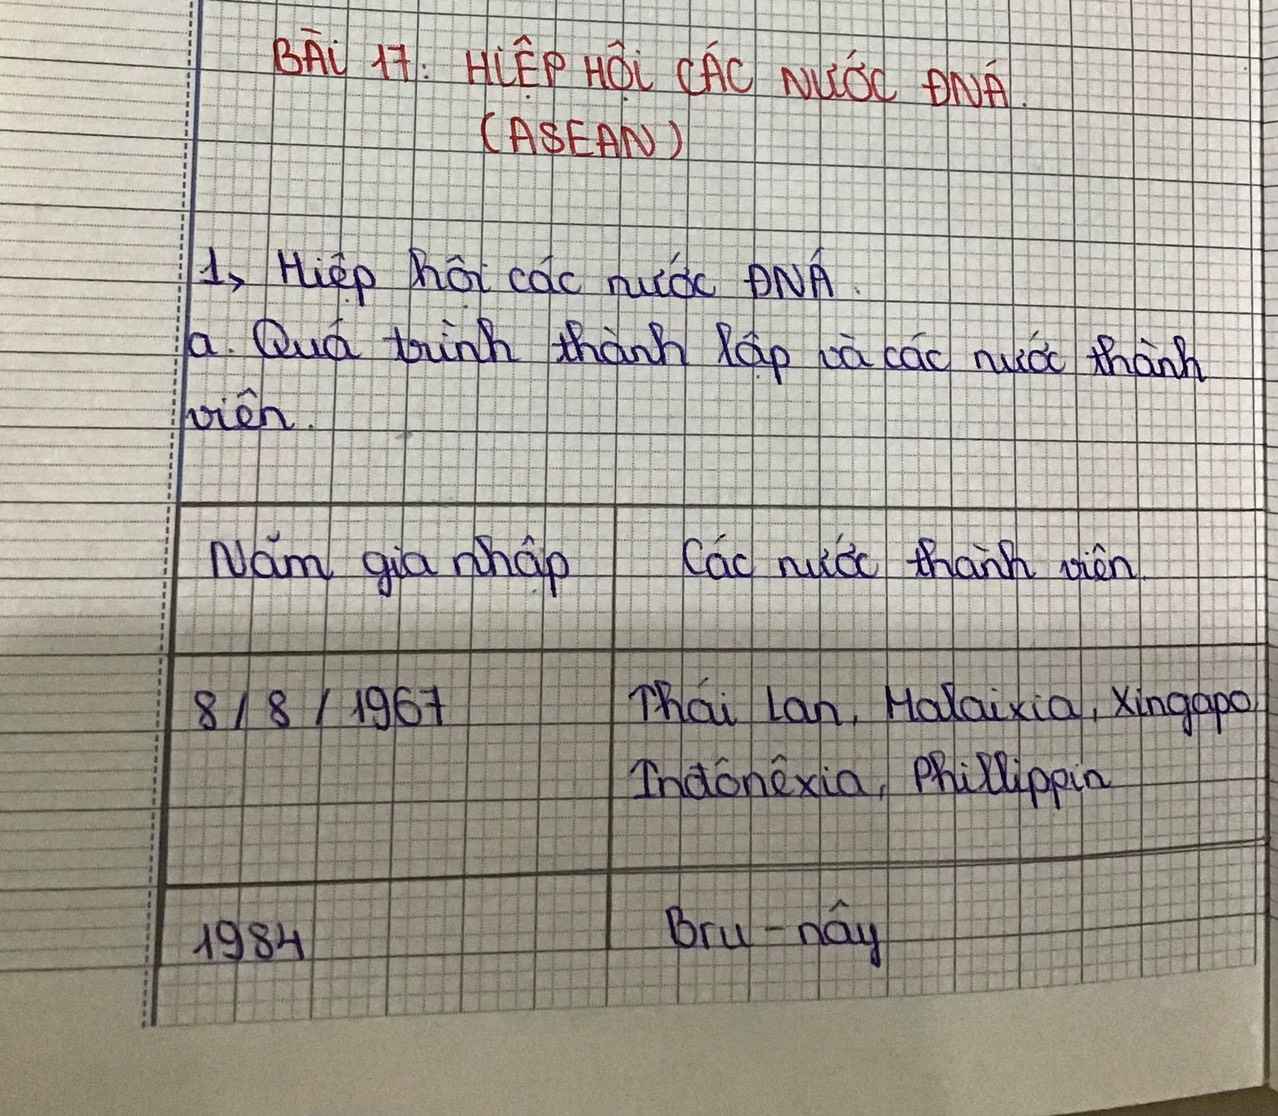 BÀi 17: HIỆP HỘI CÁC NƯỚC ĐNÁ.
(ASEAN)
1, Hiệp hội các nước ĐNÁ.
a. Quá trình thành lập và các nước thành
viên.
Năm gia nhập Các nước thành viên.
8/8/1967 Thái Lan, Malaixia, Xingapo
Indônêxia, Phillippin
1984 Bru-nây